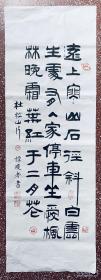 遠上寒山石徑斜白雲
生處有人家停車坐愛楓
林晚霜葉紅于二月花
杜牧
書